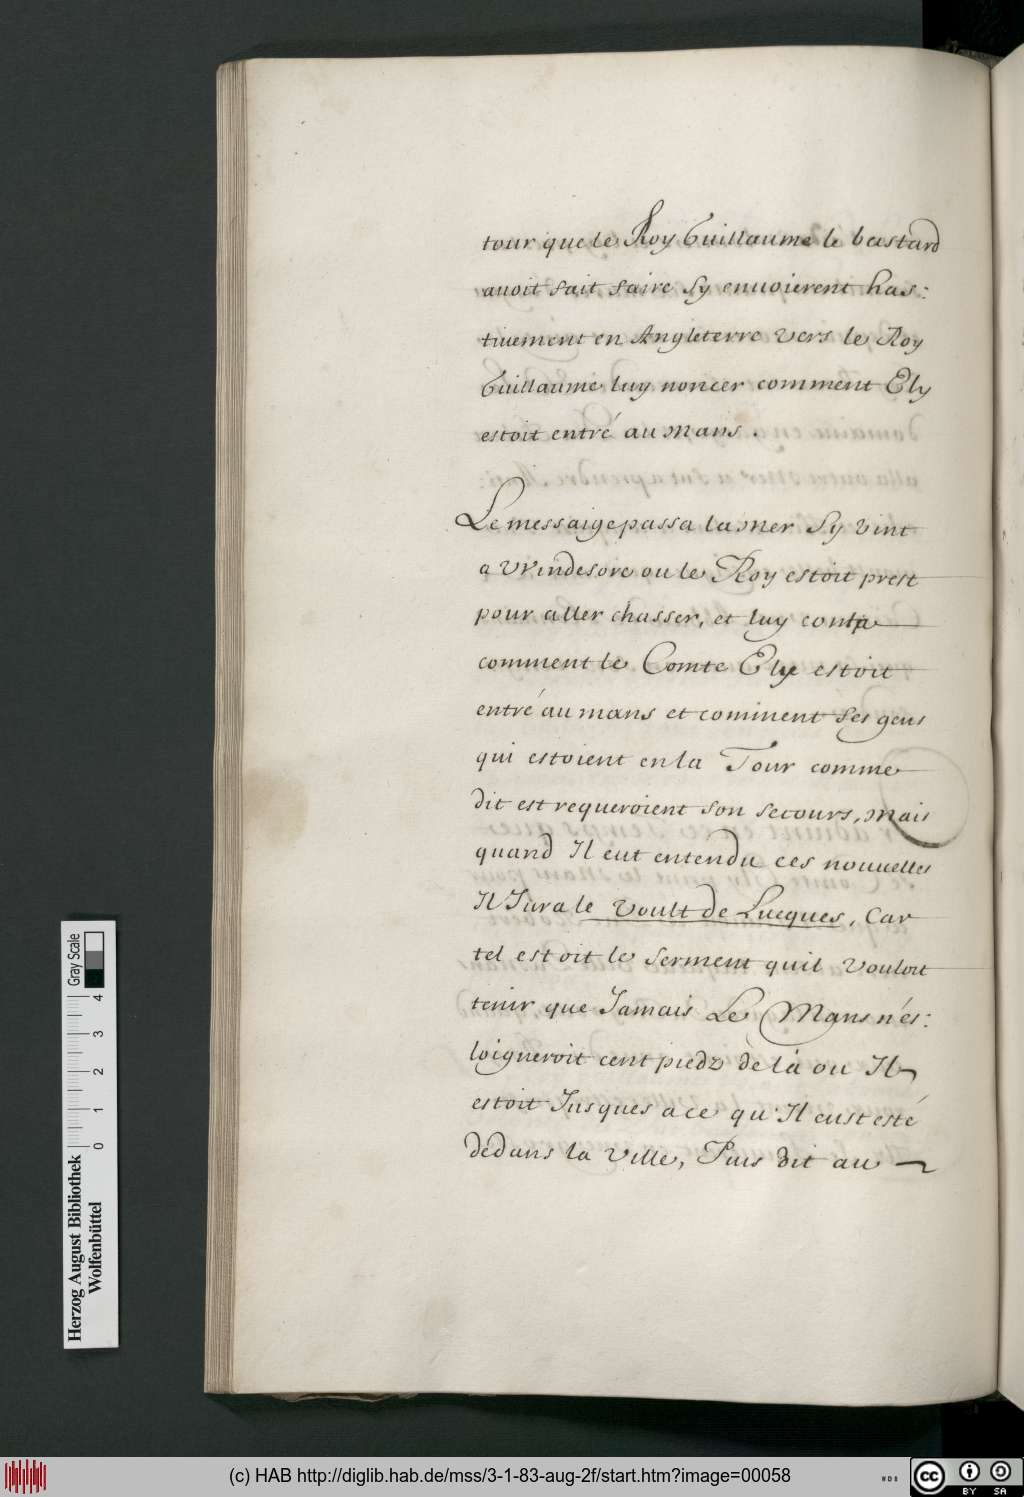 tour que le Roy Guillaume le bastard
auoit fait faire Sy enuoierent has:
tiuement en Angleterre vers le Roy
Guillaume luy noncer comment Ely
estoit entré au Mans.
Le messaige passa la mer Sy vint
a Windesore ou le Roy estoit prest
pour aller chasser, et luy conta
comment le Comte Elye estoit
entré au mans et comment ses gens
qui estoient en la Tour comme
dit est requeroient son secours, Mais
quand Il eut entendu ces nouuelles
Il Jura le Voult de Lucques, Car
tel estoit le serment quil vouloit
tenir que Jamais Le Mans n'es:
loigneroit cent piedz de là ou Il
estoit Jusques a ce qu'Il eust esté
dedans la Ville, Puis dit au
Herzog August Bibliothek
Wolfenbüttel
Gray Scale
0 1 2 3 4
(c) HAB http://diglib.hab.de/mss/3-1-83-aug-2f/start.htm?image=00058
WDB
cc BY SA